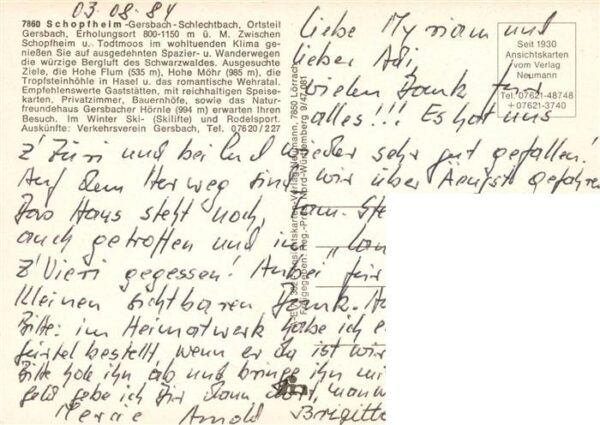 03.08.84
7860 Schopfheim-Gersbach-Schlechtbach, Ortsteil
Gersbach, Erholungsort 800-1150 m ü. M. Zwischen
Schopfheim u. Todtmoos im wohltuenden Klima ge-
nießen Sie auf ausgedehnten Spazier- u. Wanderwegen
die würzige Bergluft des Schwarzwaldes. Ausgesuchte
Ziele, die Hohe Flum (535 m), Hohe Möhr (985 m), die
Tropfsteinhöhle in Hasel u. das romantische Wehratal.
Empfehlenswerte Gaststätten, mit reichhaltigen Speise-
karten, Privatzimmer, Bauernhöfe, sowie das Natur-
freundehaus Gersbacher Hörnle (994 m) erwarten Ihren
Besuch. Im Winter Ski- (Skilifte) und Rodelsport.
Auskünfte: Verkehrsverein Gersbach, Tel. 07620/227
Seit 1930
Ansichtskarten
vom Verlag
Neumann
Tel. 07621-48748
+ 07621-3740
Ansichtskarten-Verlag Neumann, 7850 Lörrach
Freigegeben: Reg.-Präs. Nord-Württemberg 9/47061
Liebe Myriam und
lieber Adi,
vielen Dank für
alles!!! Es hat uns
z'Züri und bei Euch wieder sehr gut gefallen!
Auf dem Herweg sind wir über Aeugst gefahren
Das Haus steht noch,
auch getroffen und im
z'Vieri gegessen! Anbei für
kleinen sichtbaren Dank.
Bitte: im Heimatwerk habe ich
gürtel bestellt, wenn er da ist
Bitte hole ihn ab und bringe ihn
Geld gebe ich Dir dann dort,
Mercie Arnold Brigitte